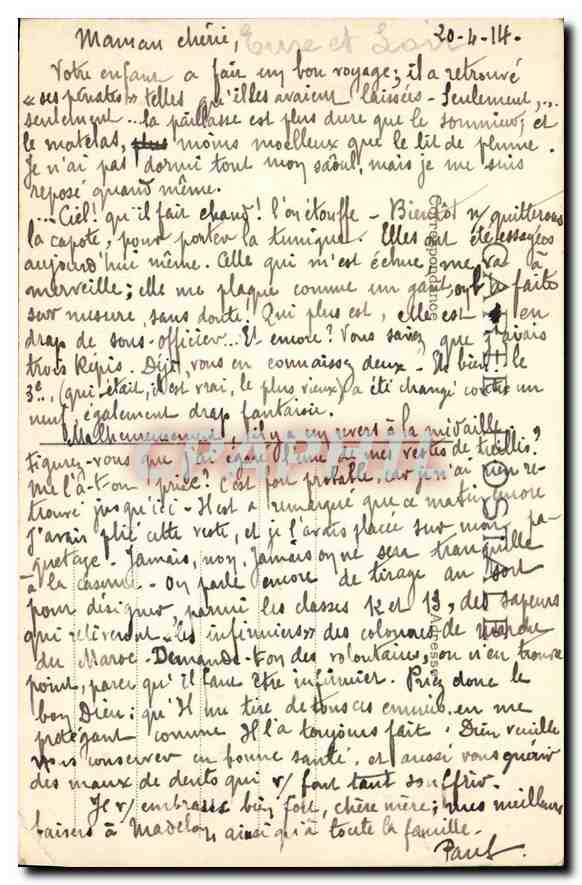 Eure et Loir
20-4-14.
Maman chérie,
Votre enfant a fait un bon voyage; il a retrouvé
« ses pénates » telles qu'elles avaient laissées - Seulement, ...
seulement ... la paillasse est plus dure que le sommier; et
le matelas, plus moins moelleux que le lit de plume.
Je n'ai pas dormi tout mon saoul, mais je me suis
reposé quand même.
... Ciel! qu'il fait chaud! l'on étouffe - Bientôt n/ quitterons
la capote, pour porter la tunique. Elles ont été essayées
aujourd'hui même. Celle qui m'est échue me va à
merveille; elle me plaque comme un gant, faite
sur mesure, sans doute! Qui plus est, elle est en
drap de sous-officier... Et encore? Vous savez que j'avais
trois Képis. Déjà, vous en connaissez deux - Eh bien! le
3e.., (qui était, il est vrai, le plus vieux) a été changé contre un
neuf, également drap fantaisie.
Malheureusement, il y a un revers à la médaille.
Figurez-vous que j'ai égaré l'une de mes vestes de treillis?
me l'a-t-on "prise"? C'est peu probable, car je n'ai rien re-
trouvé jusqu'ici - Il est à remarquer que ce matin encore
J'avais plié cette veste, et je l'avais placée sur mon pa-
quetage. Jamais, non, Jamais on ne sera tranquille
à la caserne - On parle encore de tirage au sort
pour désigner, parmi les classes 12 et 13, des sapeurs
qui relèveront « les infirmiers » des colonnes de marche
du Maroc - Demande-t-on des volontaires, on n'en trouve
point, parce qu'il faut être infirmier. Priez donc le
bon Dieu: qu'Il me tire de tous ces ennuis en me
protégeant comme Il l'a toujours fait. Dieu veuille
vous conserver en bonne santé, et aussi vous guérir
des maux de dents qui v/ font tant souffrir.
Je v/ embrasse bien fort, chère mère; mes meilleurs
baisers à Madelon, ainsi qu'à toute la famille -
Paul
CARTE POSTALE
Correspondance
Adresse
CPARAMA